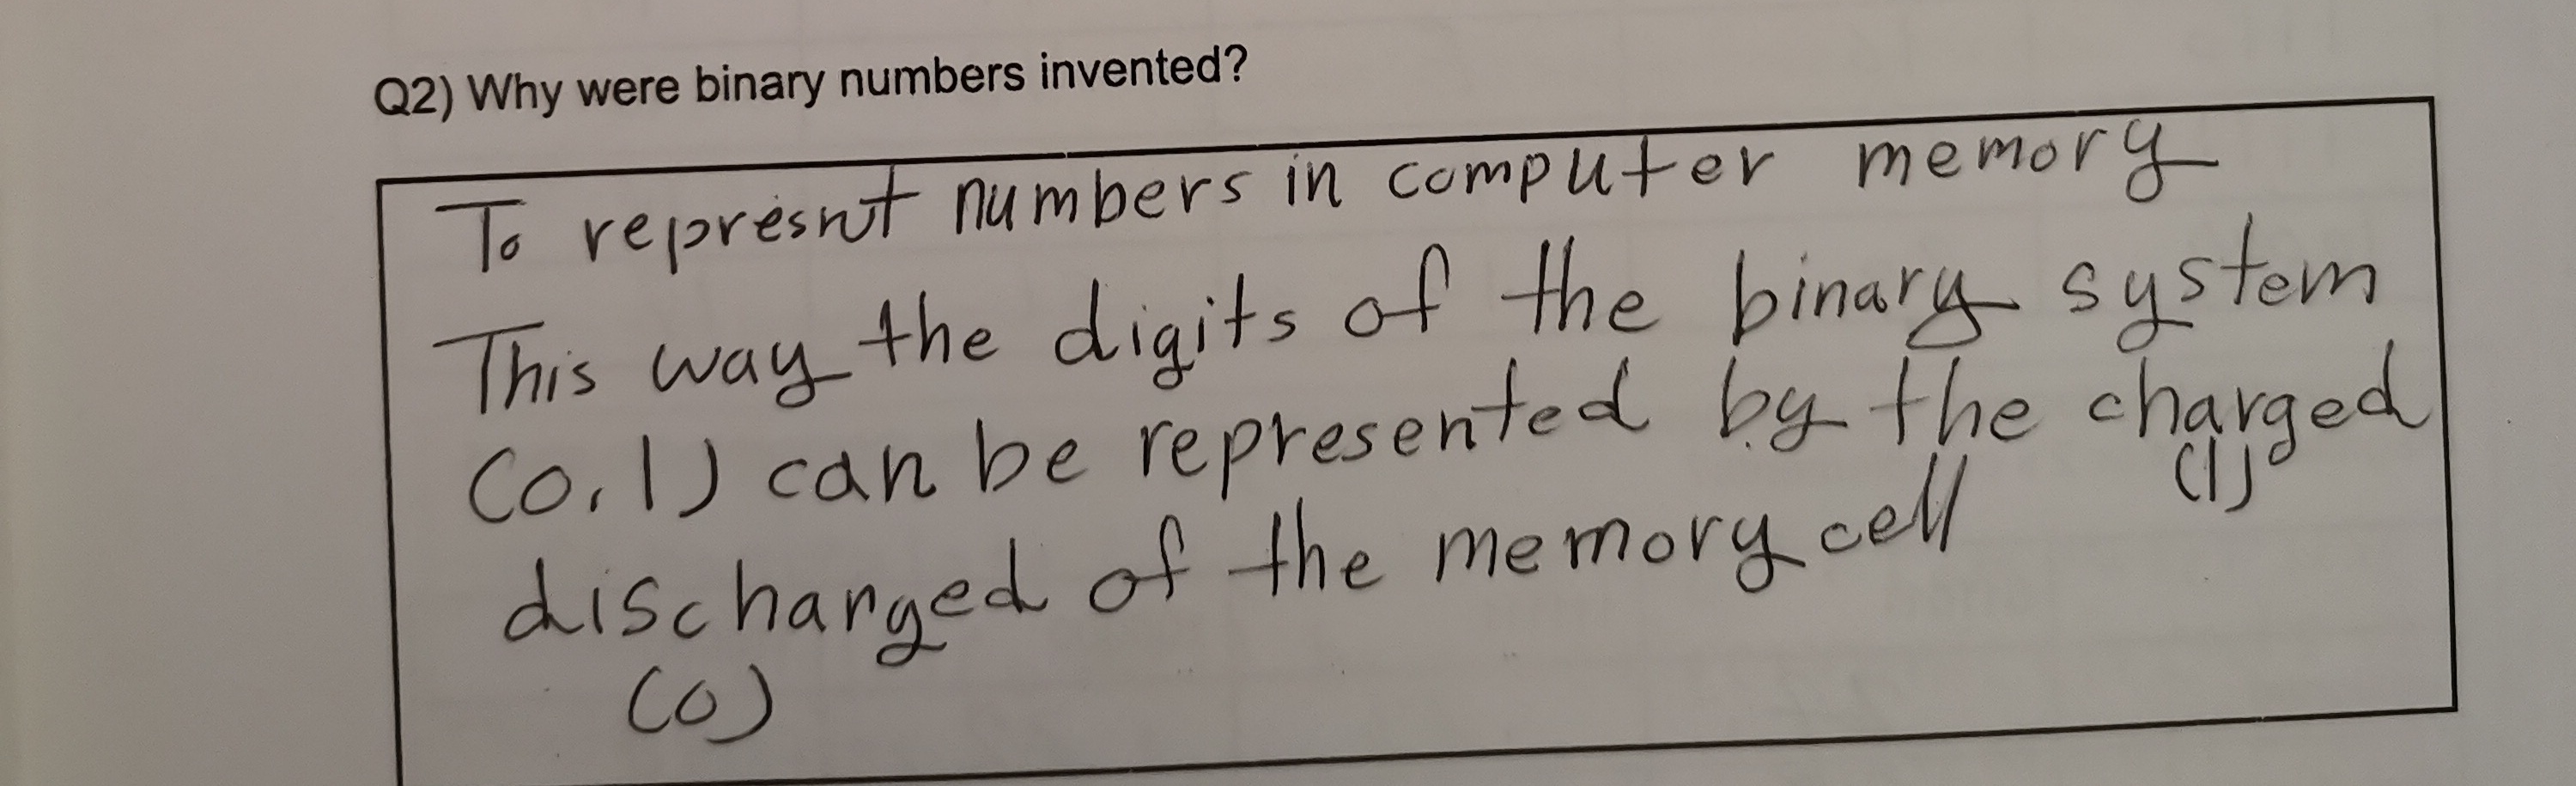 Q2) Why were binary numbers invented?
To represnt numbers in computer memory
This way the digits of the binary system
(0,1) can be represented by the charged
(1)
discharged of the memory cell
(0)